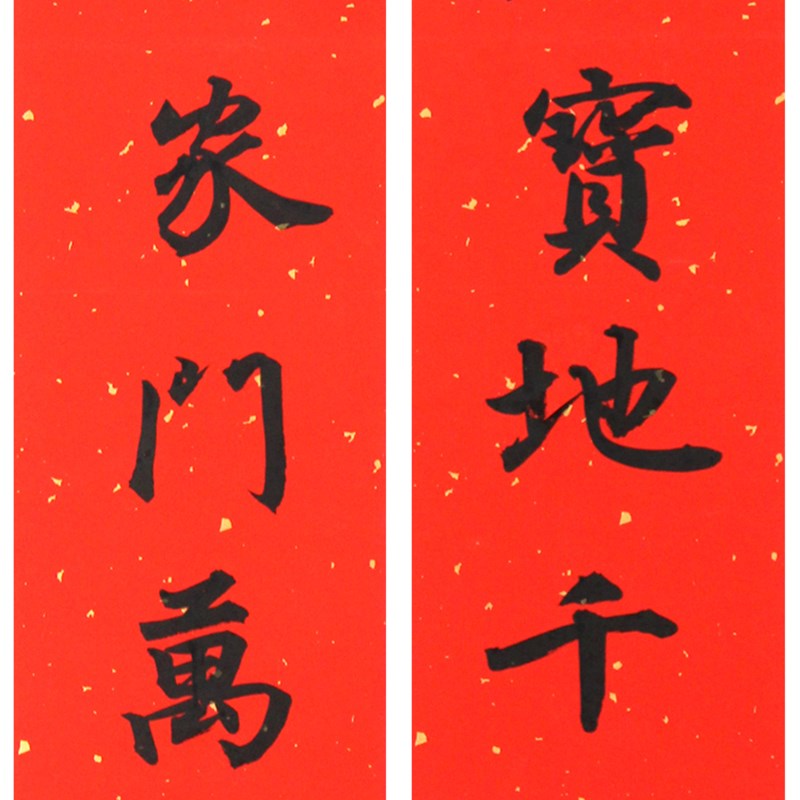 寶地千
家門萬